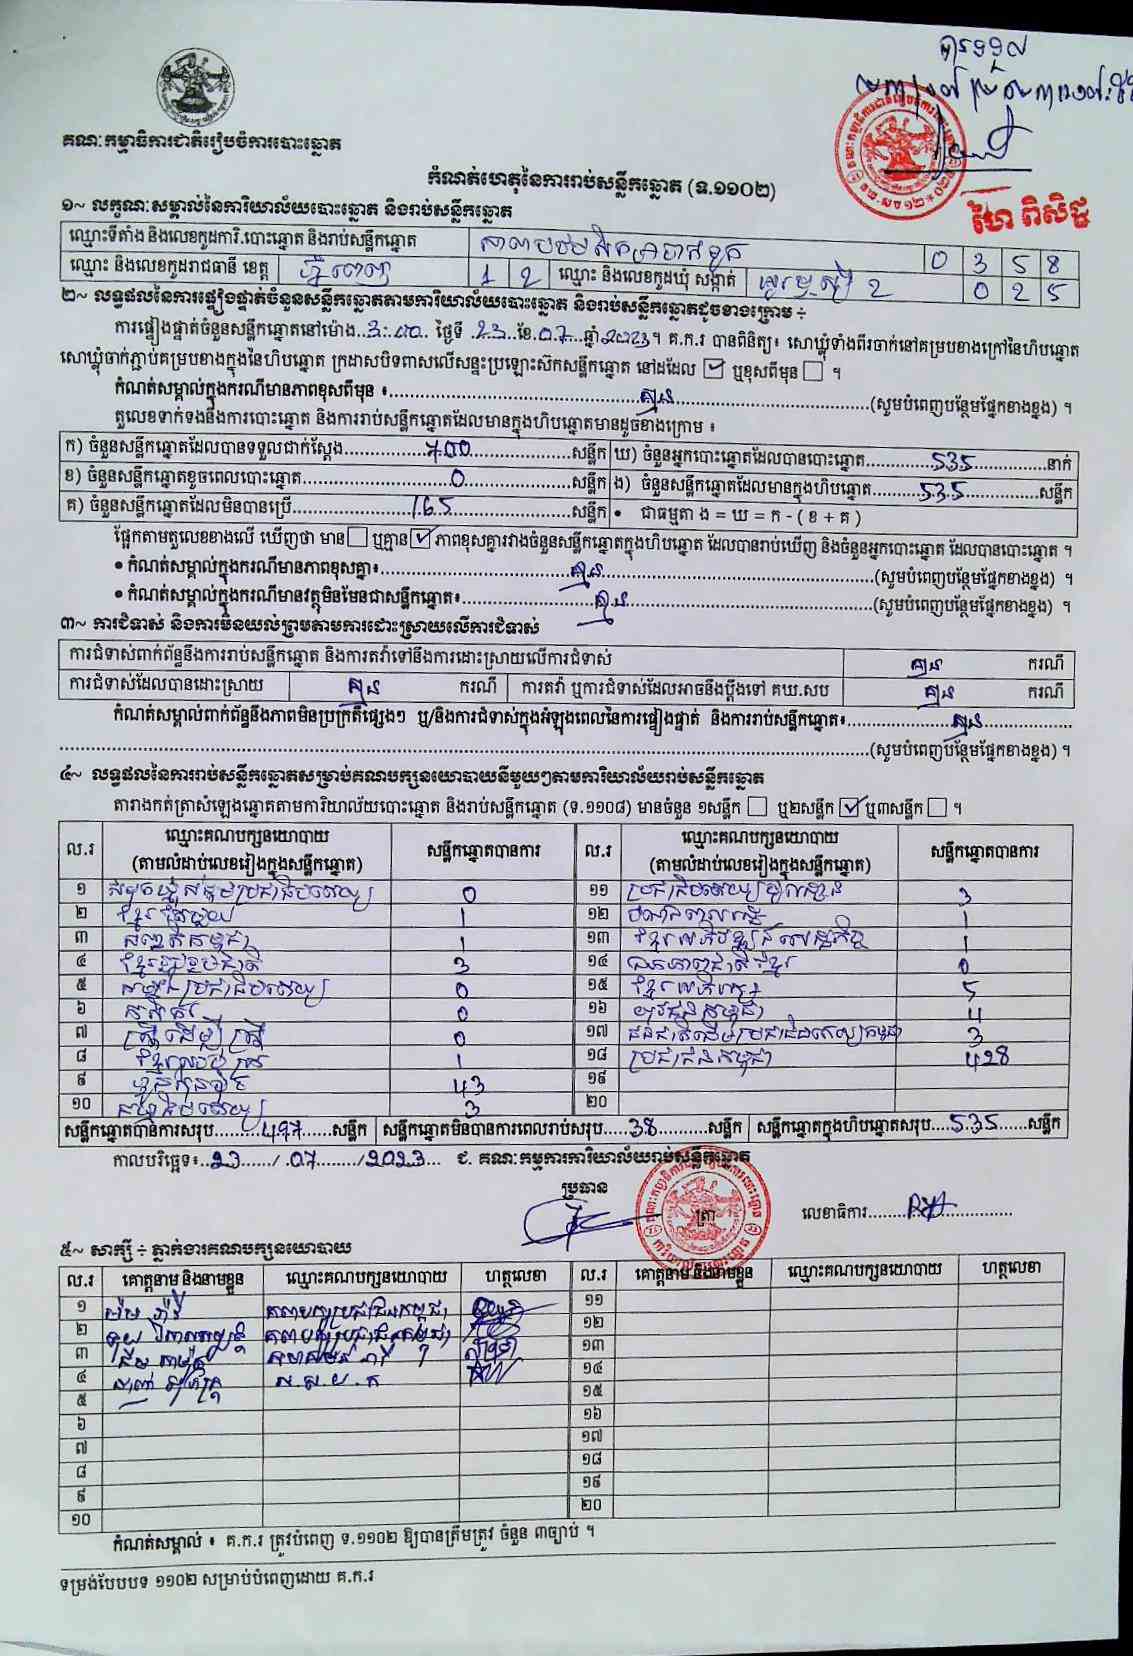 គណៈកម្មាធិការជាតិរៀបចំការបោះឆ្នោត
កំណត់ហេតុនៃការរាប់សន្លឹកឆ្នោត (ទ.១១០២)
ហៃ ពិសិដ្ឋ
១~ លក្ខណៈសម្គាល់នៃការិយាល័យបោះឆ្នោត និងរាប់សន្លឹកឆ្នោត
ឈ្មោះទីតាំង និងលេខកូដការិ.បោះឆ្នោត និងរាប់សន្លឹកឆ្នោត 0 3 5 8
ឈ្មោះ និងលេខកូដរាជធានី ខេត្ត ភ្នំពេញ 1 2 ឈ្មោះ និងលេខកូដឃុំ សង្កាត់ 0 2 5
២~ លទ្ធផលនៃការផ្ទៀងផ្ទាត់ចំនួនសន្លឹកឆ្នោតតាមការិយាល័យបោះឆ្នោត និងរាប់សន្លឹកឆ្នោតដូចខាងក្រោម ÷
ការផ្ទៀងផ្ទាត់ចំនួនសន្លឹកឆ្នោតនៅម៉ោង..3:00.. ថ្ងៃទី .23...ខែ.07....ឆ្នាំ 2023។ គ.ក.រ បានពិនិត្យ៖ សោឃ្លុំទាំងពីរចាក់នៅគម្របខាងក្រៅនៃហិបឆ្នោត
សោឃ្លុំចាក់ភ្ជាប់គម្របខាងក្នុងនៃហិបឆ្នោត ក្រដាសបិទពាសលើសន្ទះប្រឡោះស៊កសន្លឹកឆ្នោត នៅដដែល ☑ ឬខុសពីមុន ☐ ។
កំណត់សម្គាល់ក្នុងករណីមានភាពខុសពីមុន ៖ គ្មាន (សូមបំពេញបន្ថែមផ្នែកខាងខ្នង) ។
តួលេខទាក់ទងនឹងការបោះឆ្នោត និងការរាប់សន្លឹកឆ្នោតដែលមានក្នុងហិបឆ្នោតមានដូចខាងក្រោម ៖
ក) ចំនួនសន្លឹកឆ្នោតដែលបានទទួលជាក់ស្តែង 700 សន្លឹក ឃ) ចំនួនអ្នកបោះឆ្នោតដែលបានបោះឆ្នោត 535 នាក់
ខ) ចំនួនសន្លឹកឆ្នោតខូចពេលបោះឆ្នោត 0 សន្លឹក ង) ចំនួនសន្លឹកឆ្នោតដែលមានក្នុងហិបឆ្នោត 535 សន្លឹក
គ) ចំនួនសន្លឹកឆ្នោតដែលមិនបានប្រើ 165 សន្លឹក • ជាធម្មតា ង = ឃ = ក - ( ខ + គ )
ផ្អែកតាមតួលេខខាងលើ ឃើញថា មាន ☐ ឬគ្មាន ☑ ភាពខុសគ្នារវាងចំនួនសន្លឹកឆ្នោតក្នុងហិបឆ្នោត ដែលបានរាប់ឃើញ និងចំនួនអ្នកបោះឆ្នោត ដែលបានបោះឆ្នោត ។
• កំណត់សម្គាល់ក្នុងករណីមានភាពខុសគ្នា៖ គ្មាន (សូមបំពេញបន្ថែមផ្នែកខាងខ្នង) ។
• កំណត់សម្គាល់ក្នុងករណីមានវត្ថុមិនមែនជាសន្លឹកឆ្នោត៖ គ្មាន (សូមបំពេញបន្ថែមផ្នែកខាងខ្នង) ។
៣~ ការជំទាស់ និងការមិនយល់ព្រមតាមការដោះស្រាយលើការជំទាស់
ការជំទាស់ពាក់ព័ន្ធនឹងការរាប់សន្លឹកឆ្នោត និងការតវ៉ាទៅនឹងការដោះស្រាយលើការជំទាស់ គ្មាន ករណី
ការជំទាស់ដែលបានដោះស្រាយ គ្មាន ករណី ការតវ៉ា ឬការជំទាស់ដែលអាចនឹងប្តឹងទៅ គឃ.សប គ្មាន ករណី
កំណត់សម្គាល់ពាក់ព័ន្ធនឹងភាពមិនប្រក្រតីផ្សេងៗ ឬ/និងការជំទាស់ក្នុងអំឡុងពេលនៃការផ្ទៀងផ្ទាត់ និងការរាប់សន្លឹកឆ្នោត៖ គ្មាន
(សូមបំពេញបន្ថែមផ្នែកខាងខ្នង) ។
៤~ លទ្ធផលនៃការរាប់សន្លឹកឆ្នោតសម្រាប់គណបក្សនយោបាយនីមួយៗតាមការិយាល័យរាប់សន្លឹកឆ្នោត
តារាងកត់ត្រាសំឡេងឆ្នោតតាមការិយាល័យបោះឆ្នោត និងរាប់សន្លឹកឆ្នោត (ទ.១១០៨) មានចំនួន ១សន្លឹក ☐ ឬ២សន្លឹក ☑ ឬ៣សន្លឹក ☐ ។
ល.រ ឈ្មោះគណបក្សនយោបាយ (តាមលំដាប់លេខរៀងក្នុងសន្លឹកឆ្នោត) សន្លឹកឆ្នោតបានការ ល.រ ឈ្មោះគណបក្សនយោបាយ (តាមលំដាប់លេខរៀងក្នុងសន្លឹកឆ្នោត) សន្លឹកឆ្នោតបានការ
១ 0 ១១ 3
២ ខ្មែរតែមួយ 1 ១២ 1
៣ 1 ១៣ ខ្មែរអភិវឌ្ឍន៍សេដ្ឋកិច្ច 1
៤ ខ្មែររួបរួមជាតិ 3 ១៤ ឯកភាពជាតិខ្មែរ 0
៥ កម្លាំងប្រជាធិបតេយ្យ 0 ១៥ ខ្មែរអភិរក្ស 5
៦ 0 ១៦ យុវជនកម្ពុជា 4
៧ ស្ត្រីដើម្បីស្ត្រី 0 ១៧ ជនជាតិដើមប្រជាធិបតេយ្យកម្ពុជា 3
៨ 1 ១៨ ប្រជាជនកម្ពុជា 428
៩ ហ្វ៊ុនស៊ិនប៉ិច 43 ១៩
១០ 3 ២០
សន្លឹកឆ្នោតបានការសរុប 497 សន្លឹក សន្លឹកឆ្នោតមិនបានការពេលរាប់សរុប 38 សន្លឹក សន្លឹកឆ្នោតក្នុងហិបឆ្នោតសរុប 535 សន្លឹក
កាលបរិច្ឆេទ៖ 23 / 07 / 2023 ជ. គណៈកម្មការការិយាល័យរាប់សន្លឹកឆ្នោត
ប្រធាន ត្រា លេខាធិការ
៥~ សាក្សី ÷ ភ្នាក់ងារគណបក្សនយោបាយ
ល.រ គោត្តនាម និងនាមខ្លួន ឈ្មោះគណបក្សនយោបាយ ហត្ថលេខា ល.រ គោត្តនាម និងនាមខ្លួន ឈ្មោះគណបក្សនយោបាយ ហត្ថលេខា
១ គណបក្សប្រជាជនកម្ពុជា ១១
២ គណបក្សប្រជាជនកម្ពុជា ១២
៣ ១៣
៤ ស.ស.យ.ក ១៤
៥ ១៥
៦ ១៦
៧ ១៧
៨ ១៨
៩ ១៩
១០ ២០
កំណត់សម្គាល់ ៖ គ.ក.រ ត្រូវបំពេញ ទ.១១០២ ឱ្យបានត្រឹមត្រូវ ចំនួន ៣ច្បាប់ ។
ទម្រង់បែបបទ ១១០២ សម្រាប់បំពេញដោយ គ.ក.រ